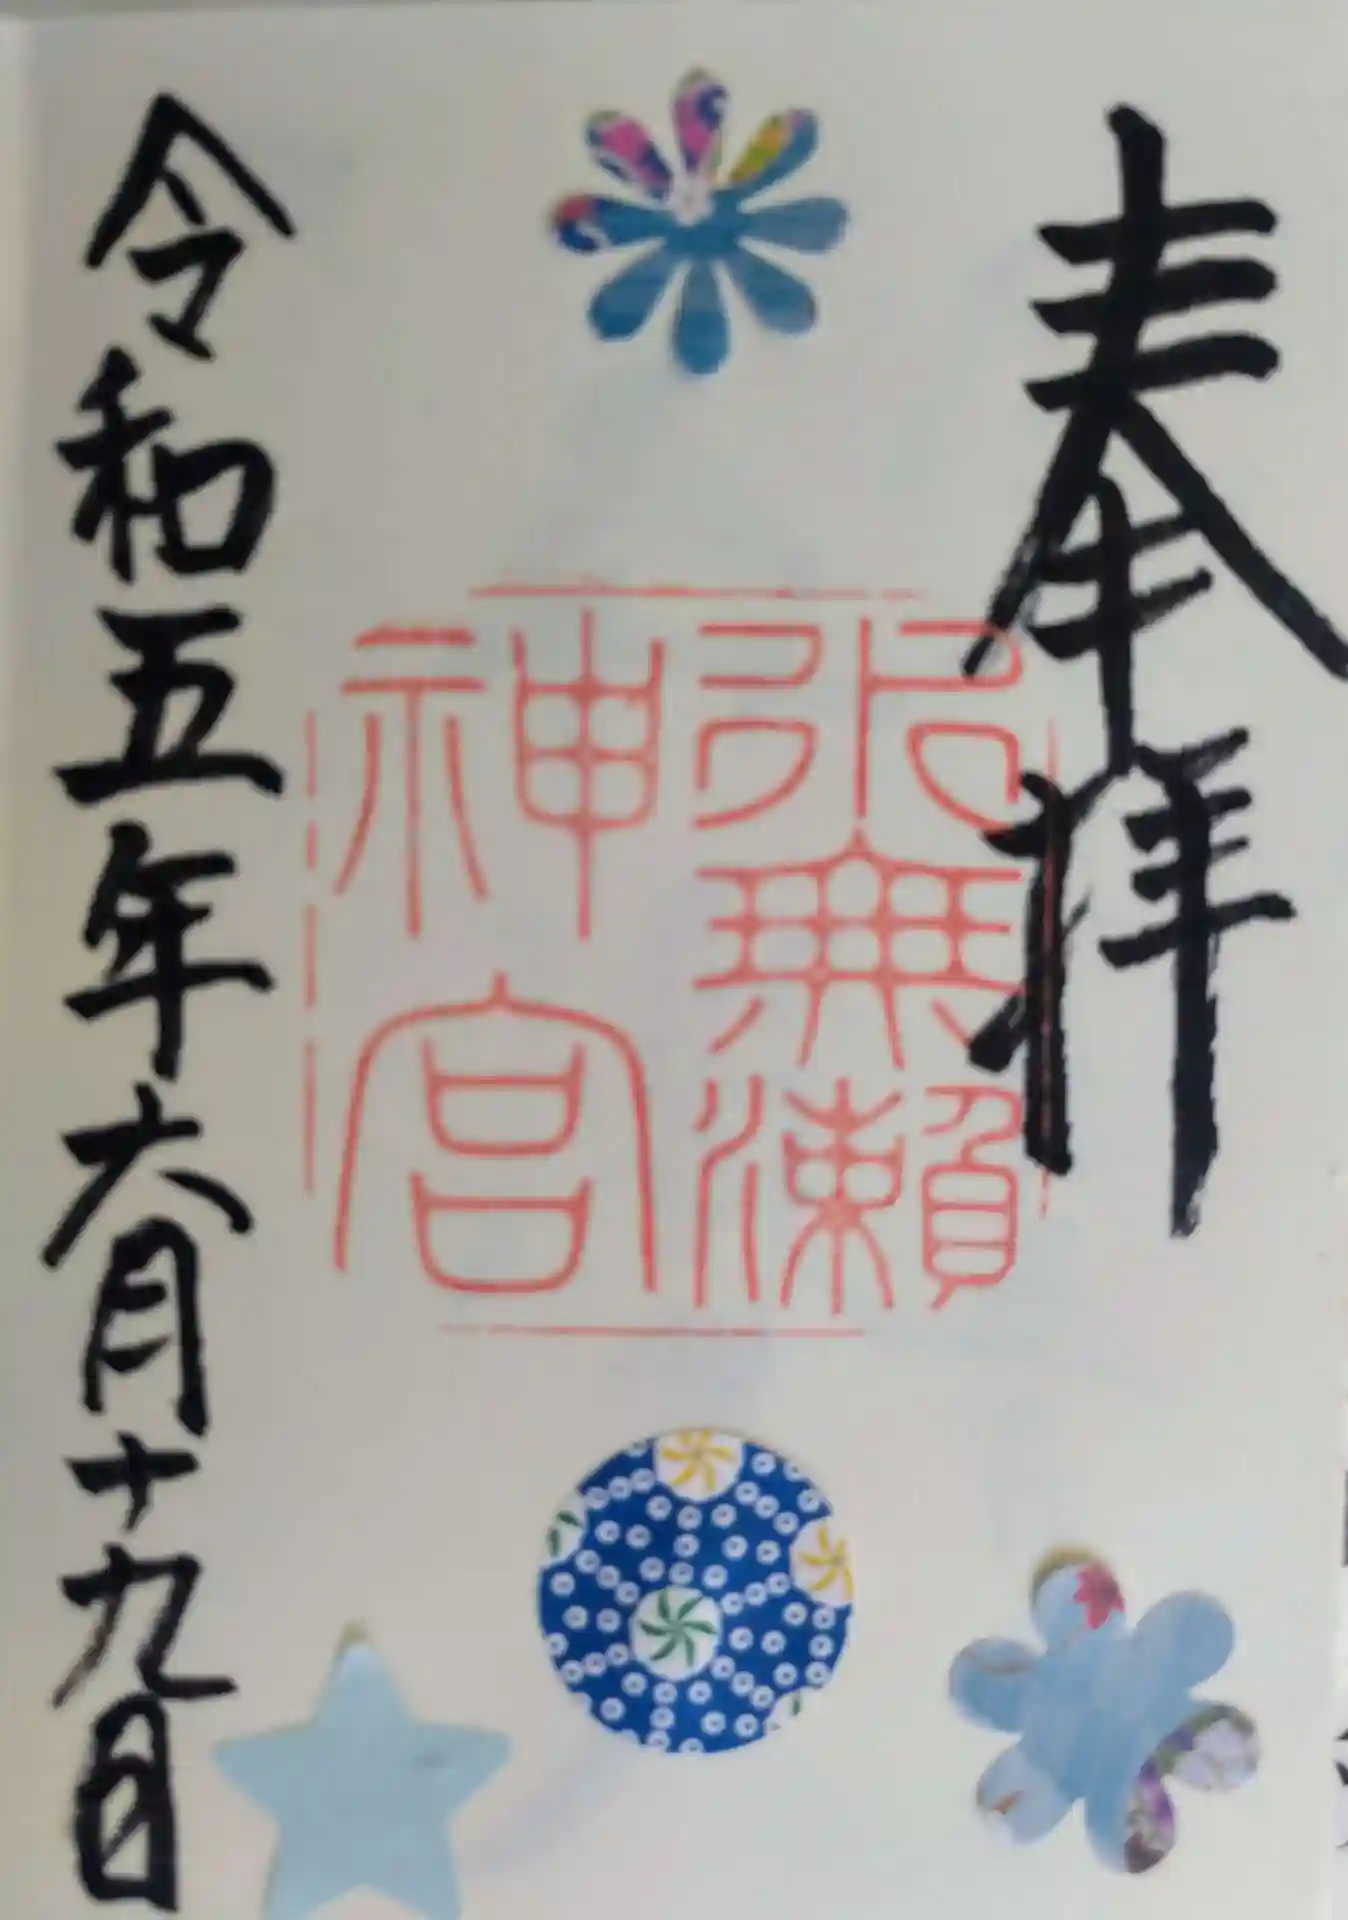 奉拝
水無瀬
神宮
令和五年六月十九日